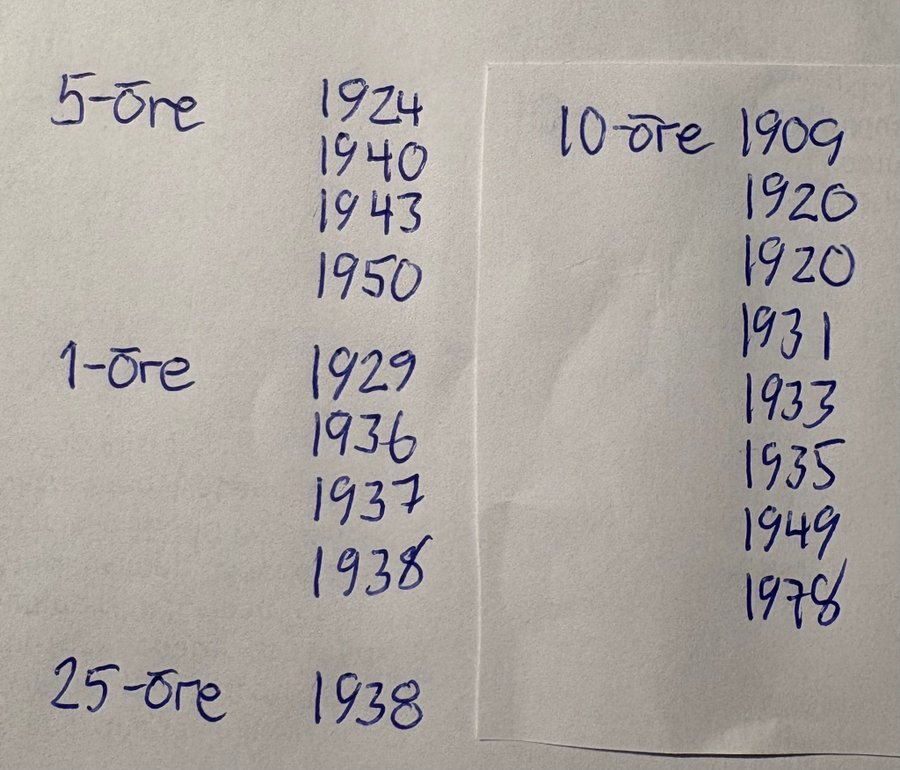 5-öre 1924
1940
1943
1950
1-öre 1929
1936
1937
1938
25-öre 1938
10-öre 1909
1920
1920
1931
1933
1935
1949
1978